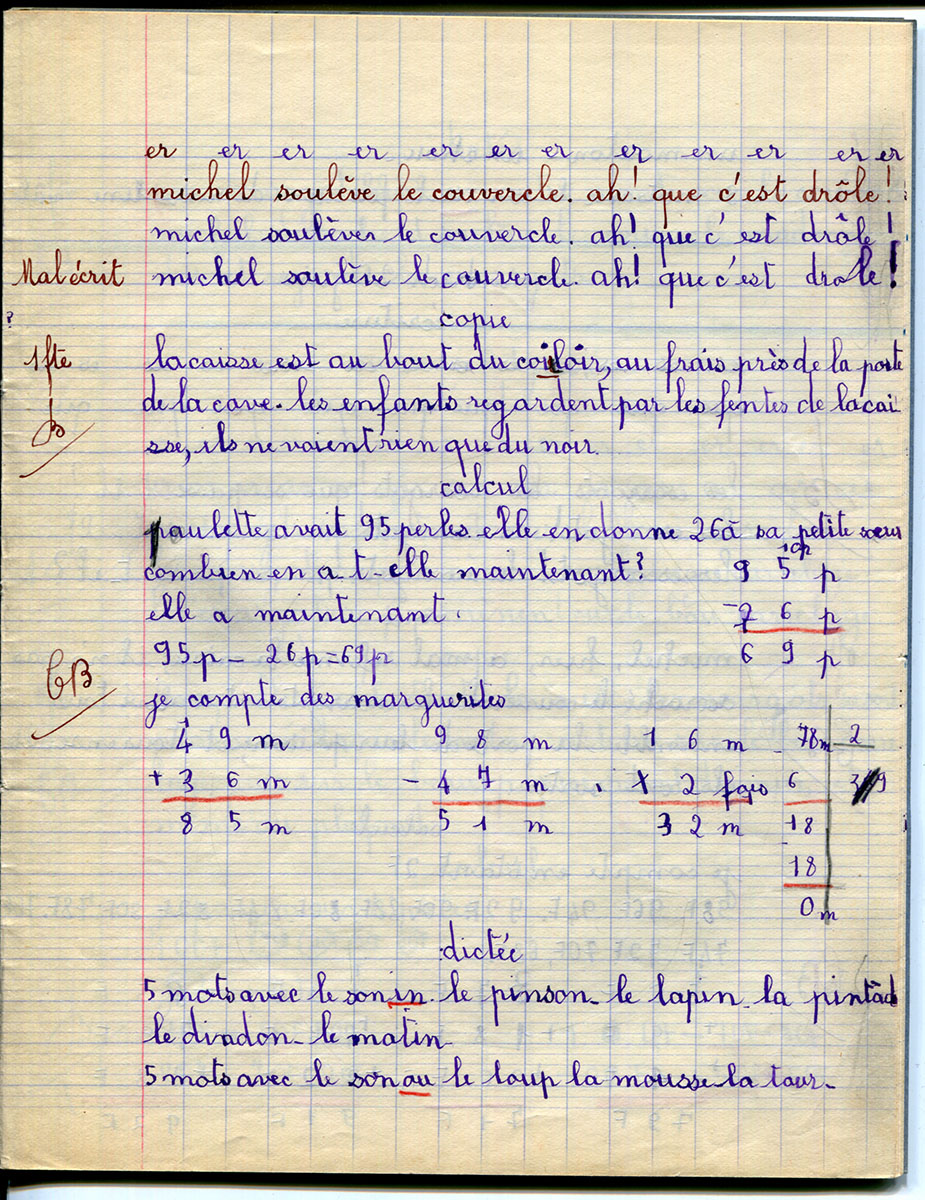 er er er er er er er er er er er er
michel soulève le couvercle. ah! que c'est drôle!
michel soulèver le couvercle. ah! que c'est drôle!
Mal écrit michel soulève le couvercle. ah! que c'est drole!
copie
1 fte la caisse est au bout du couloir, au frais près de la porte
B de la cave. les enfants regardent par les fentes de la cai
sse, ils ne voient rien que du noir.
calcul
paulette avait 95 perles. elle en donne 26 à sa petite sœur
combien en a-t-elle maintenant? 9 5 p
elle a maintenant. - 2 6 p
95p - 26p = 69p 6 9 p
BB je compte des marguerites
4 9 m 9 8 m 1 6 m 78m 2
+ 3 6 m - 4 7 m × 2 fois 6 3 9
8 5 m 5 1 m 3 2 m 18
18
0m
dictée
5 mots avec le son in. le pinson - le lapin - la pintad
le dindon - le matin -
5 mots avec le son ou le loup la mousse - la tour -